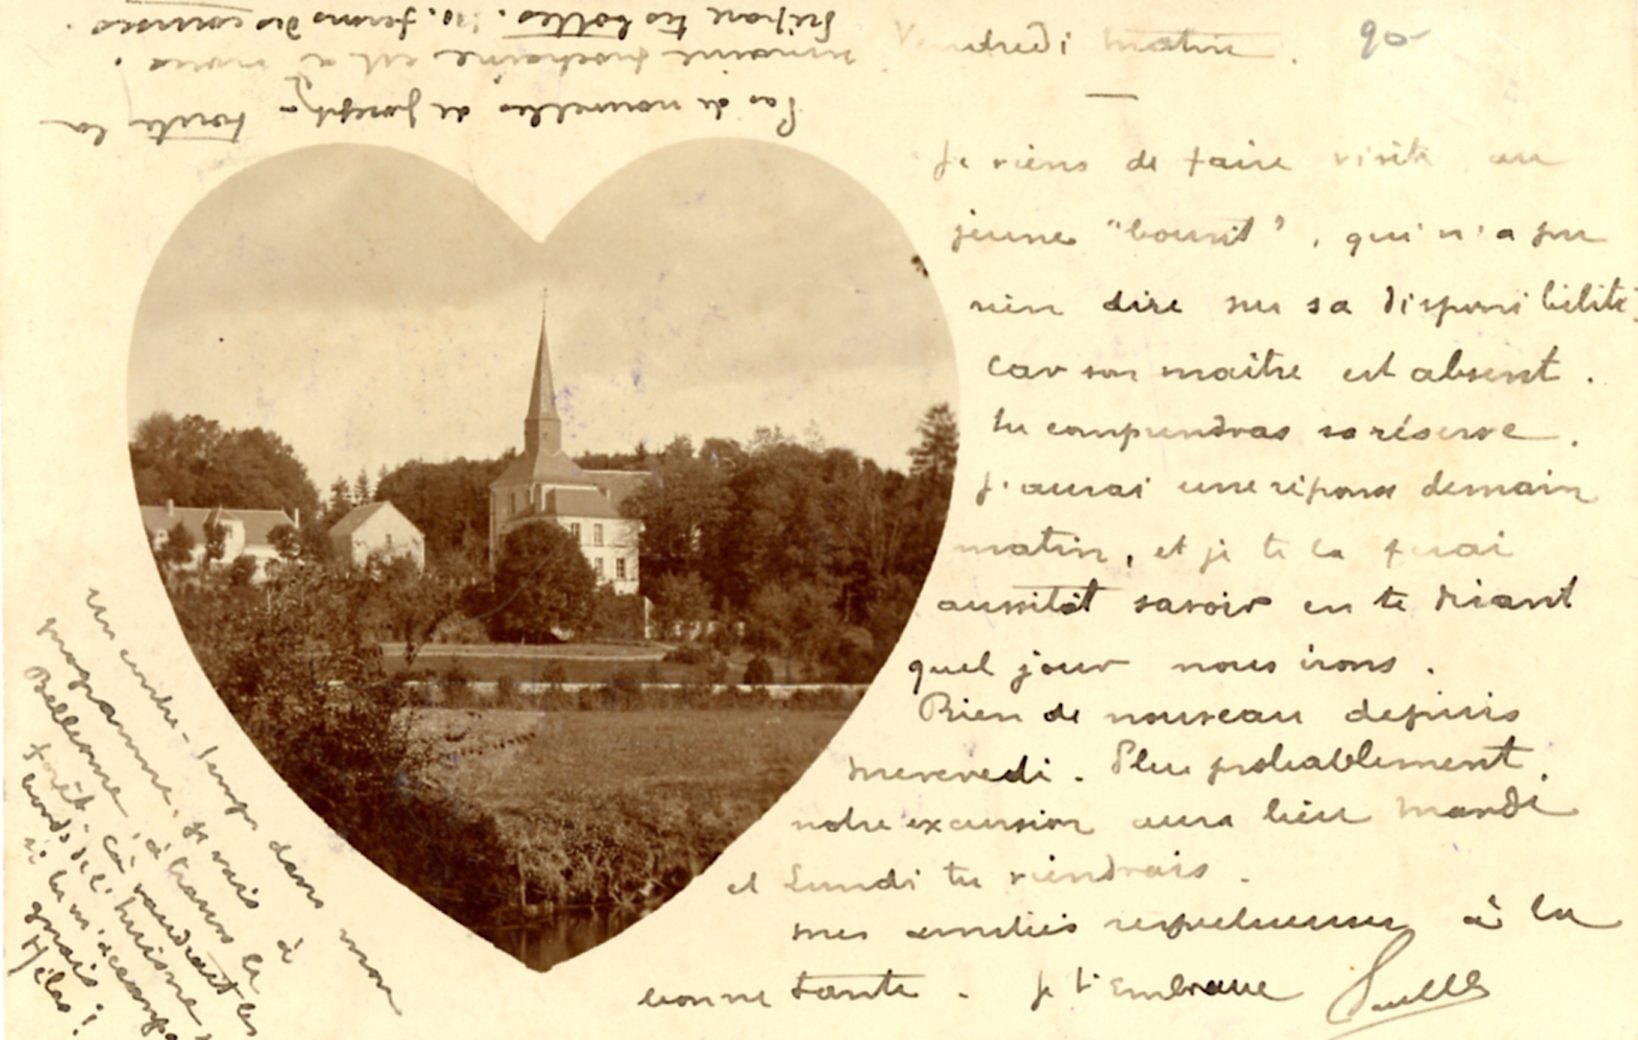 Vendredi matin. 90
Je viens de faire visite au
jeune "bourit", qui n'a pu
rien dire sur sa disponibilité,
car son maître est absent.
tu comprendras sa réserve.
J'aurai une réponse demain
matin, et je te la ferai
aussitôt savoir en te disant
quel jour nous irons.
Rien de nouveau depuis
mercredi. Plus probablement
notre excursion aura lieu mardi
et Lundi tu viendrais.
mes amitiés respectueuses à la
bonne tante. Je t'embrasse
un contre-temps dans mon
programme. Je vais à
Bellesme, à travers la
forêt. Cà vaudrait les
bords de l'huisne,
si tu m'accompa
gnais!
Hélas!
Pas de nouvelles de Joseph - toute la
semaine prochaine est à nous.
Prépare tes bottes. ferons des courses.